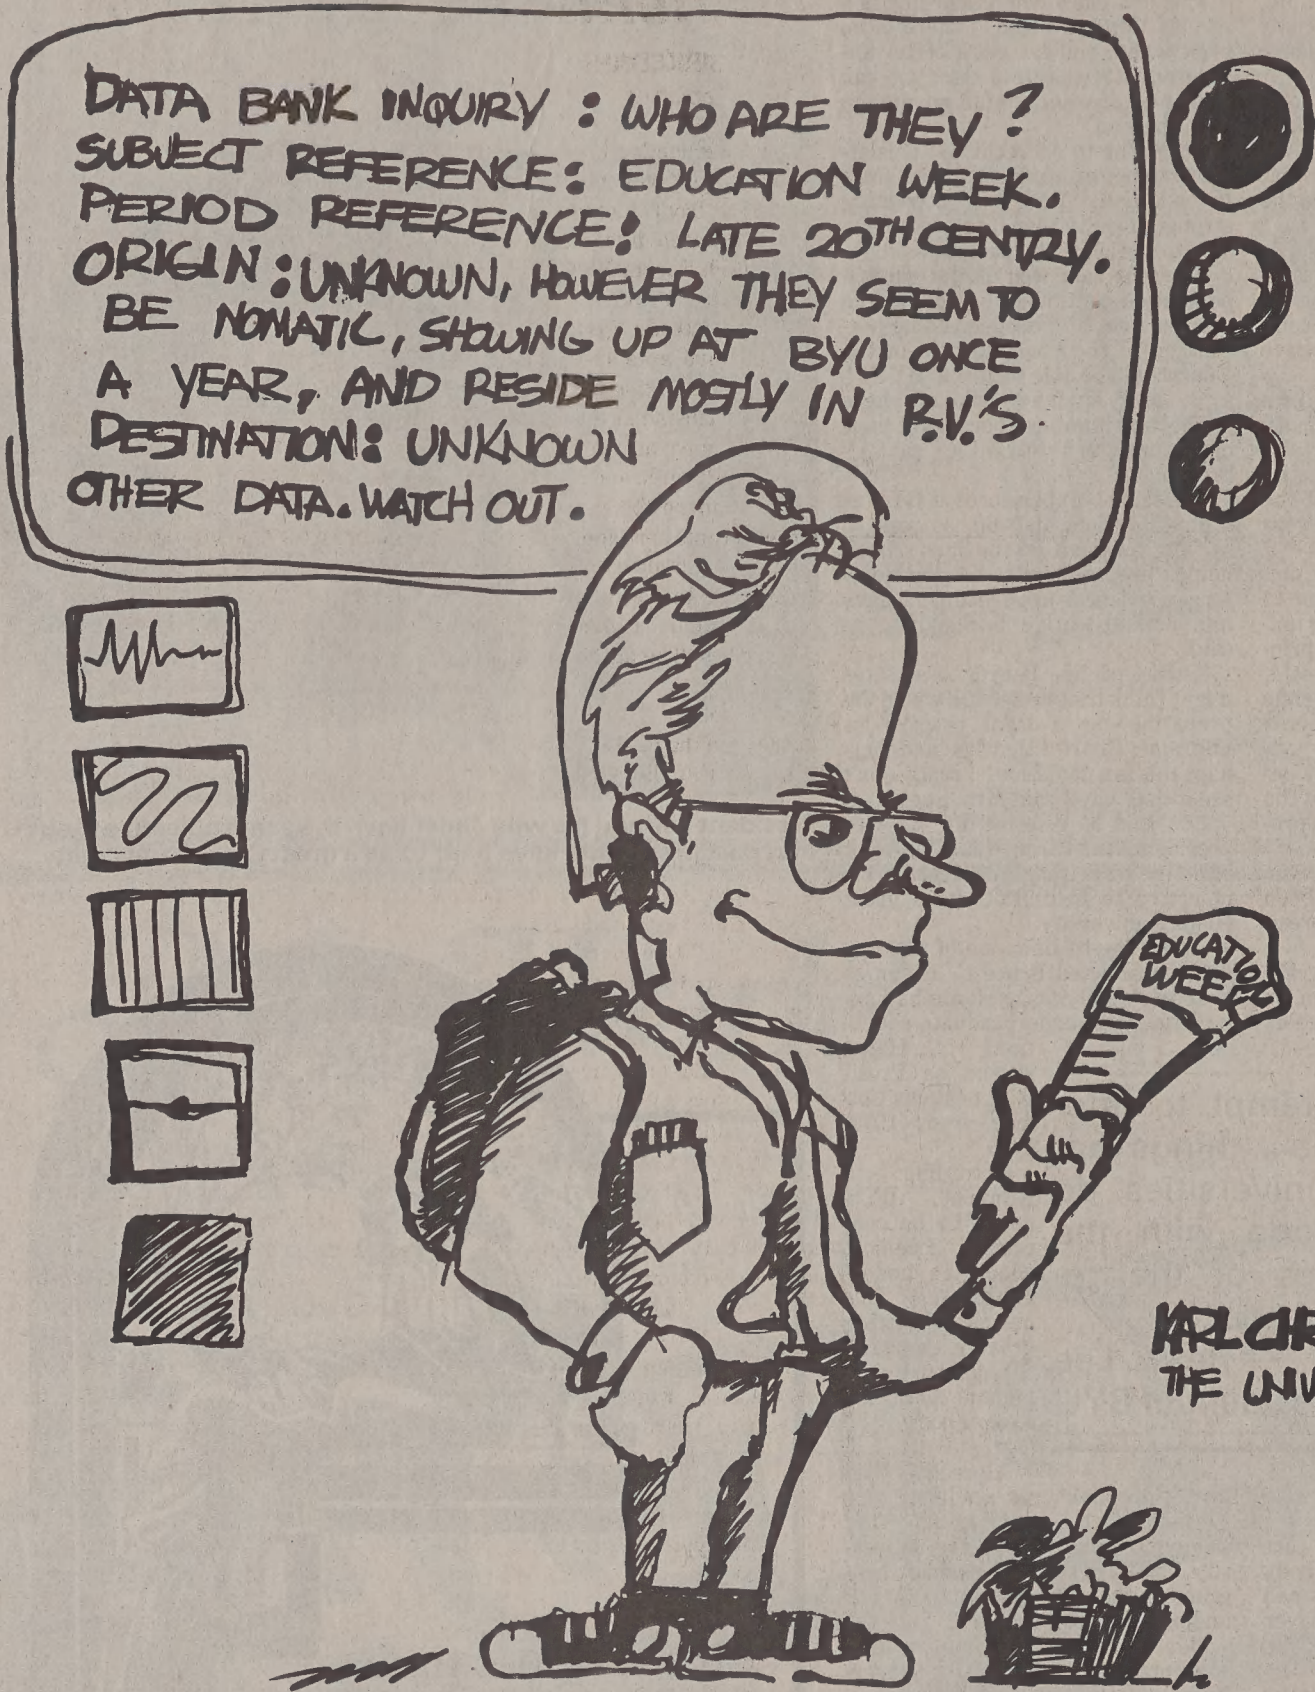 DATA BANK INQUIRY : WHO ARE THEY ?
SUBJECT REFERENCE : EDUCATION WEEK.
PERIOD REFERENCE : LATE 20TH CENTRY.
ORIGIN : UNKNOWN, HOWEVER THEY SEEM TO
BE NOMATIC, SHOWING UP AT BYU ONCE
A YEAR, AND RESIDE MOSTLY IN R.V.'S.
DESTINATION : UNKNOWN
OTHER DATA. WATCH OUT.
EDUCATION
WEEK
KARL
THE